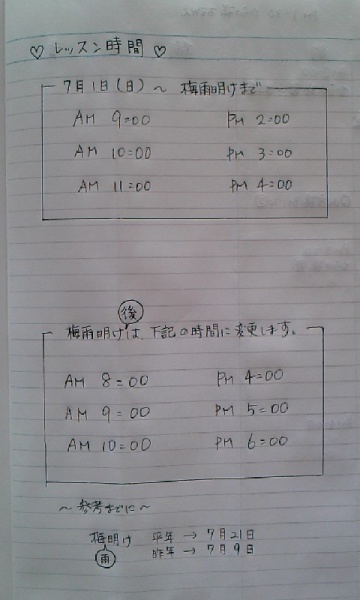 ♡ レッスン時間 ♡
7月1日(日)～ 梅雨明けまで
AM 9:00 PM 2:00
AM 10:00 PM 3:00
AM 11:00 PM 4:00
梅雨明け後は、下記の時間に変更します。
AM 8:00 PM 4:00
AM 9:00 PM 5:00
AM 10:00 PM 6:00
～参考までに～
梅雨明け 平年 → 7月21日
昨年 → 7月9日